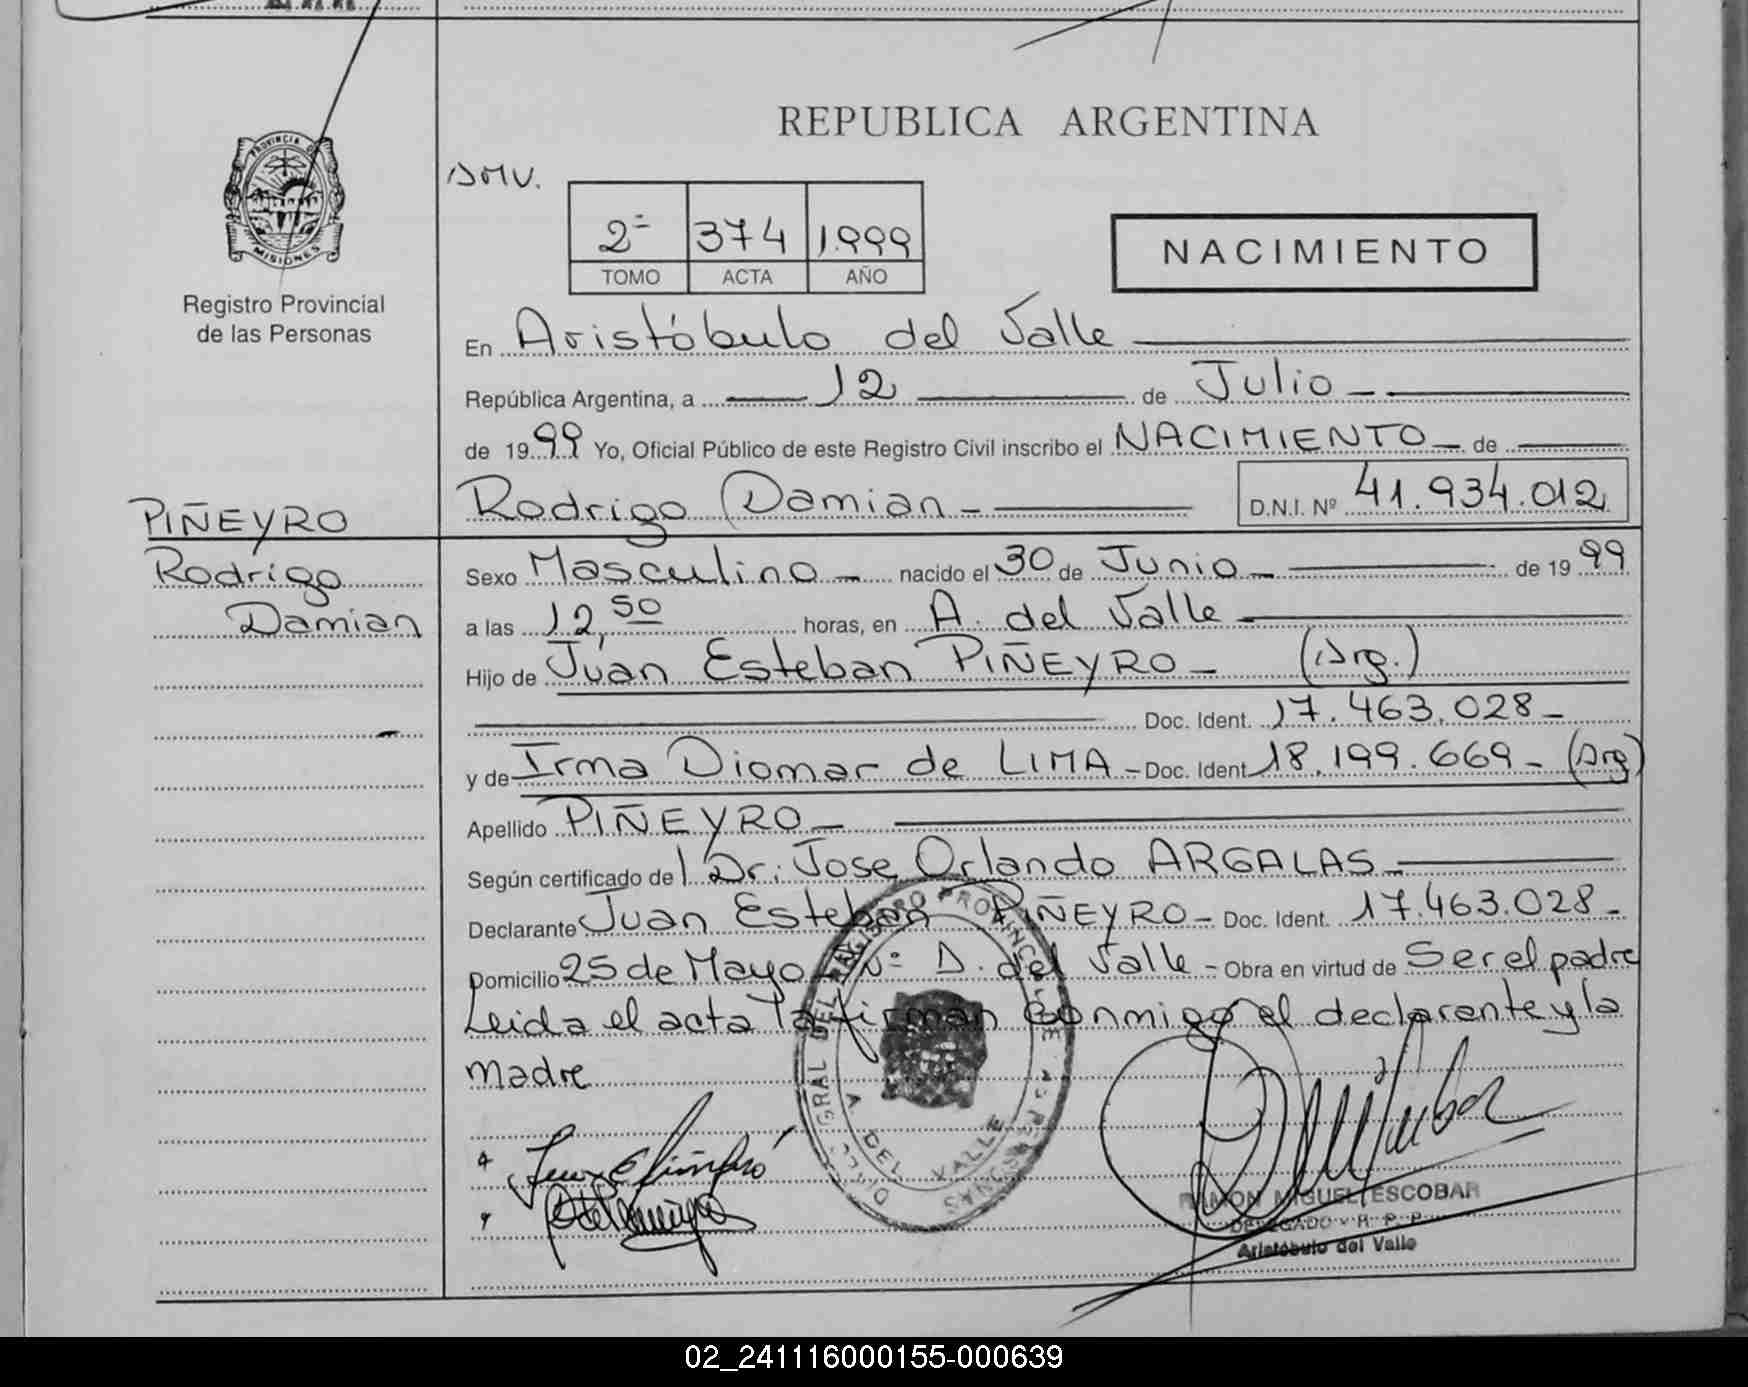 REPUBLICA ARGENTINA
PROVINCIA DE
MISIONES
Registro Provincial
de las Personas
2º 374 1.999
TOMO ACTA AÑO
NACIMIENTO
En Aristóbulo del Valle
República Argentina, a 12 de Julio
de 1999 Yo, Oficial Público de este Registro Civil inscribo el NACIMIENTO de
Rodrigo Damian D.N.I. Nº 41.934.012
PIÑEYRO
Rodrigo
Damian
Sexo Masculino nacido el 30 de Junio de 1999
a las 12,50 horas, en A. del Valle
Hijo de Juan Esteban PIÑEYRO (Arg.)
Doc. Ident. 17.463.028
y de Irma Diomar de LIMA Doc. Ident. 18.199.669 (Arg)
Apellido PIÑEYRO
Según certificado del Dr. Jose Orlando ARGALAS
Declarante Juan Esteban PIÑEYRO Doc. Ident. 17.463.028
Domicilio 25 de Mayo A. del Valle Obra en virtud de Ser el padre
Leida el acta la firman conmigo el declarante y la
madre
A. DEL VALLE
RAMON MIGUEL ESCOBAR
DELEGADO R. P. P.
Aristóbulo del Valle
02_241116000155-000639